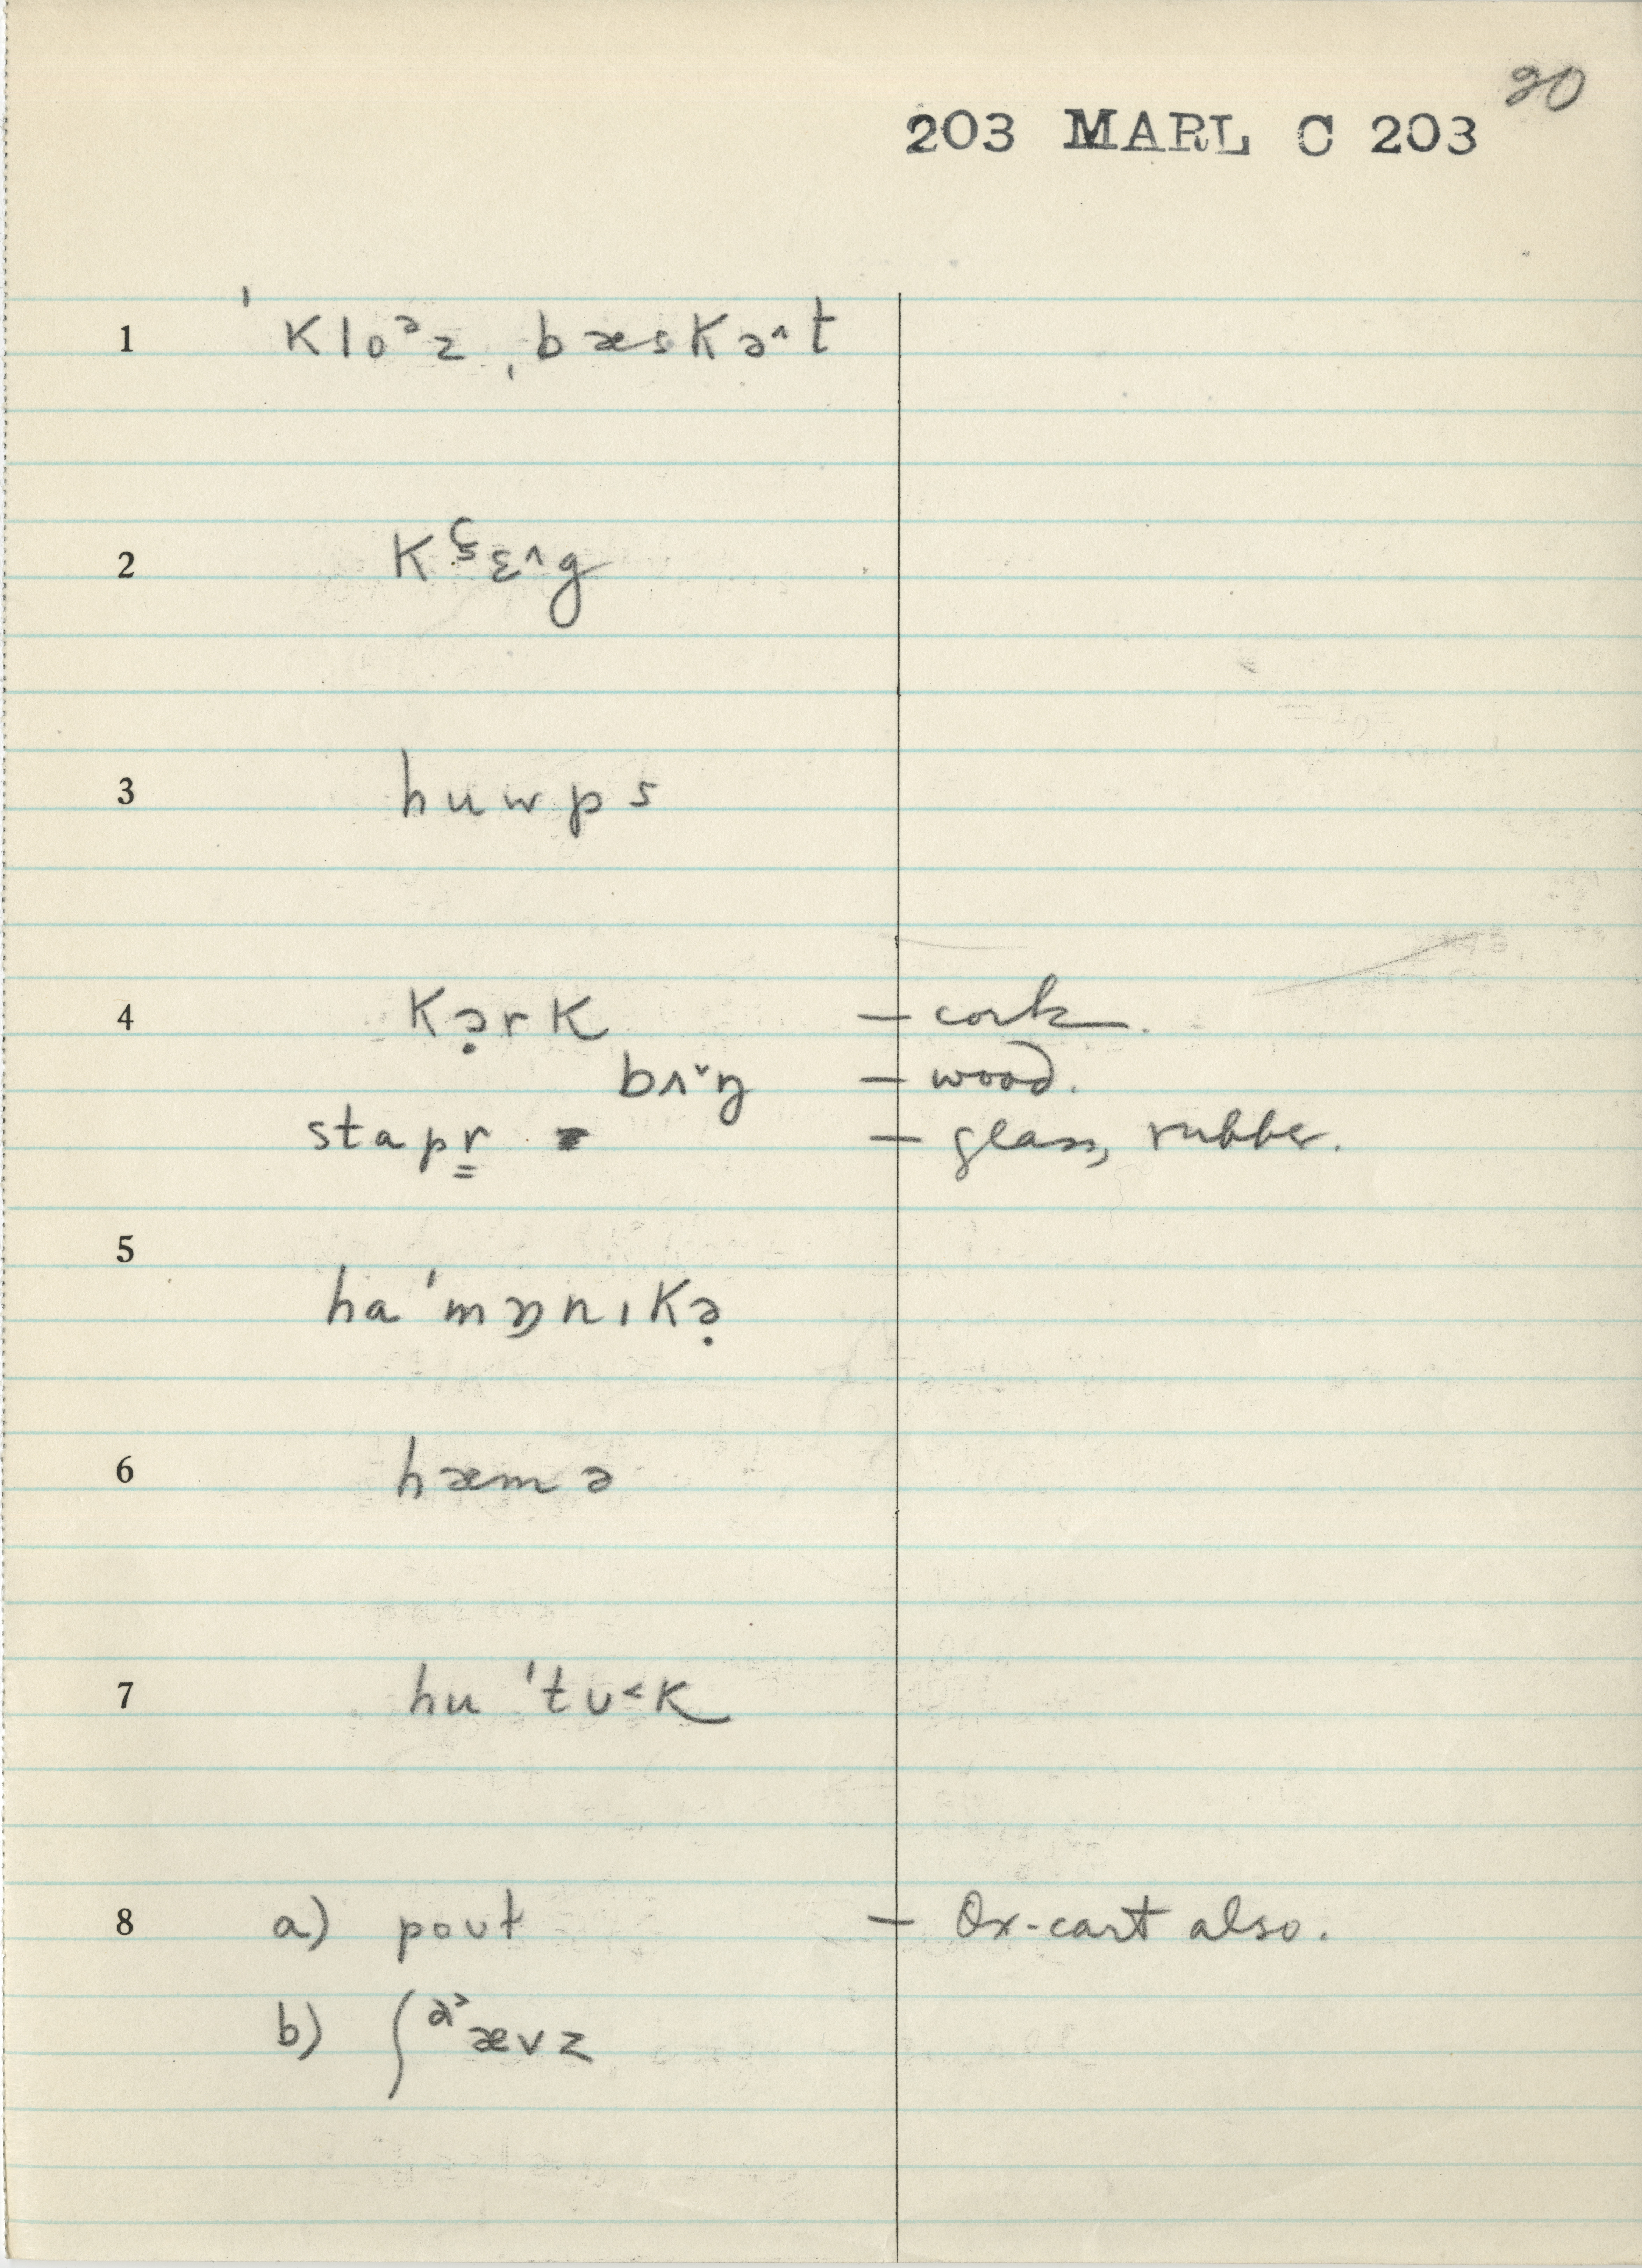 20
203 MARL C 203
1 ˈkloᵊz ˌbæskə^t
2 kʢɛ^g
3 huwps
4 kə̣rk — cork.
bʌ˅ŋ — wood.
stapr̳ — glass, rubber.
5 haˈmɒnɪkə̣
6 hæmə
7 huˈtʊ<k
8 a) poʊt — Ox-cart also.
b) ʃᵊ˃ævz